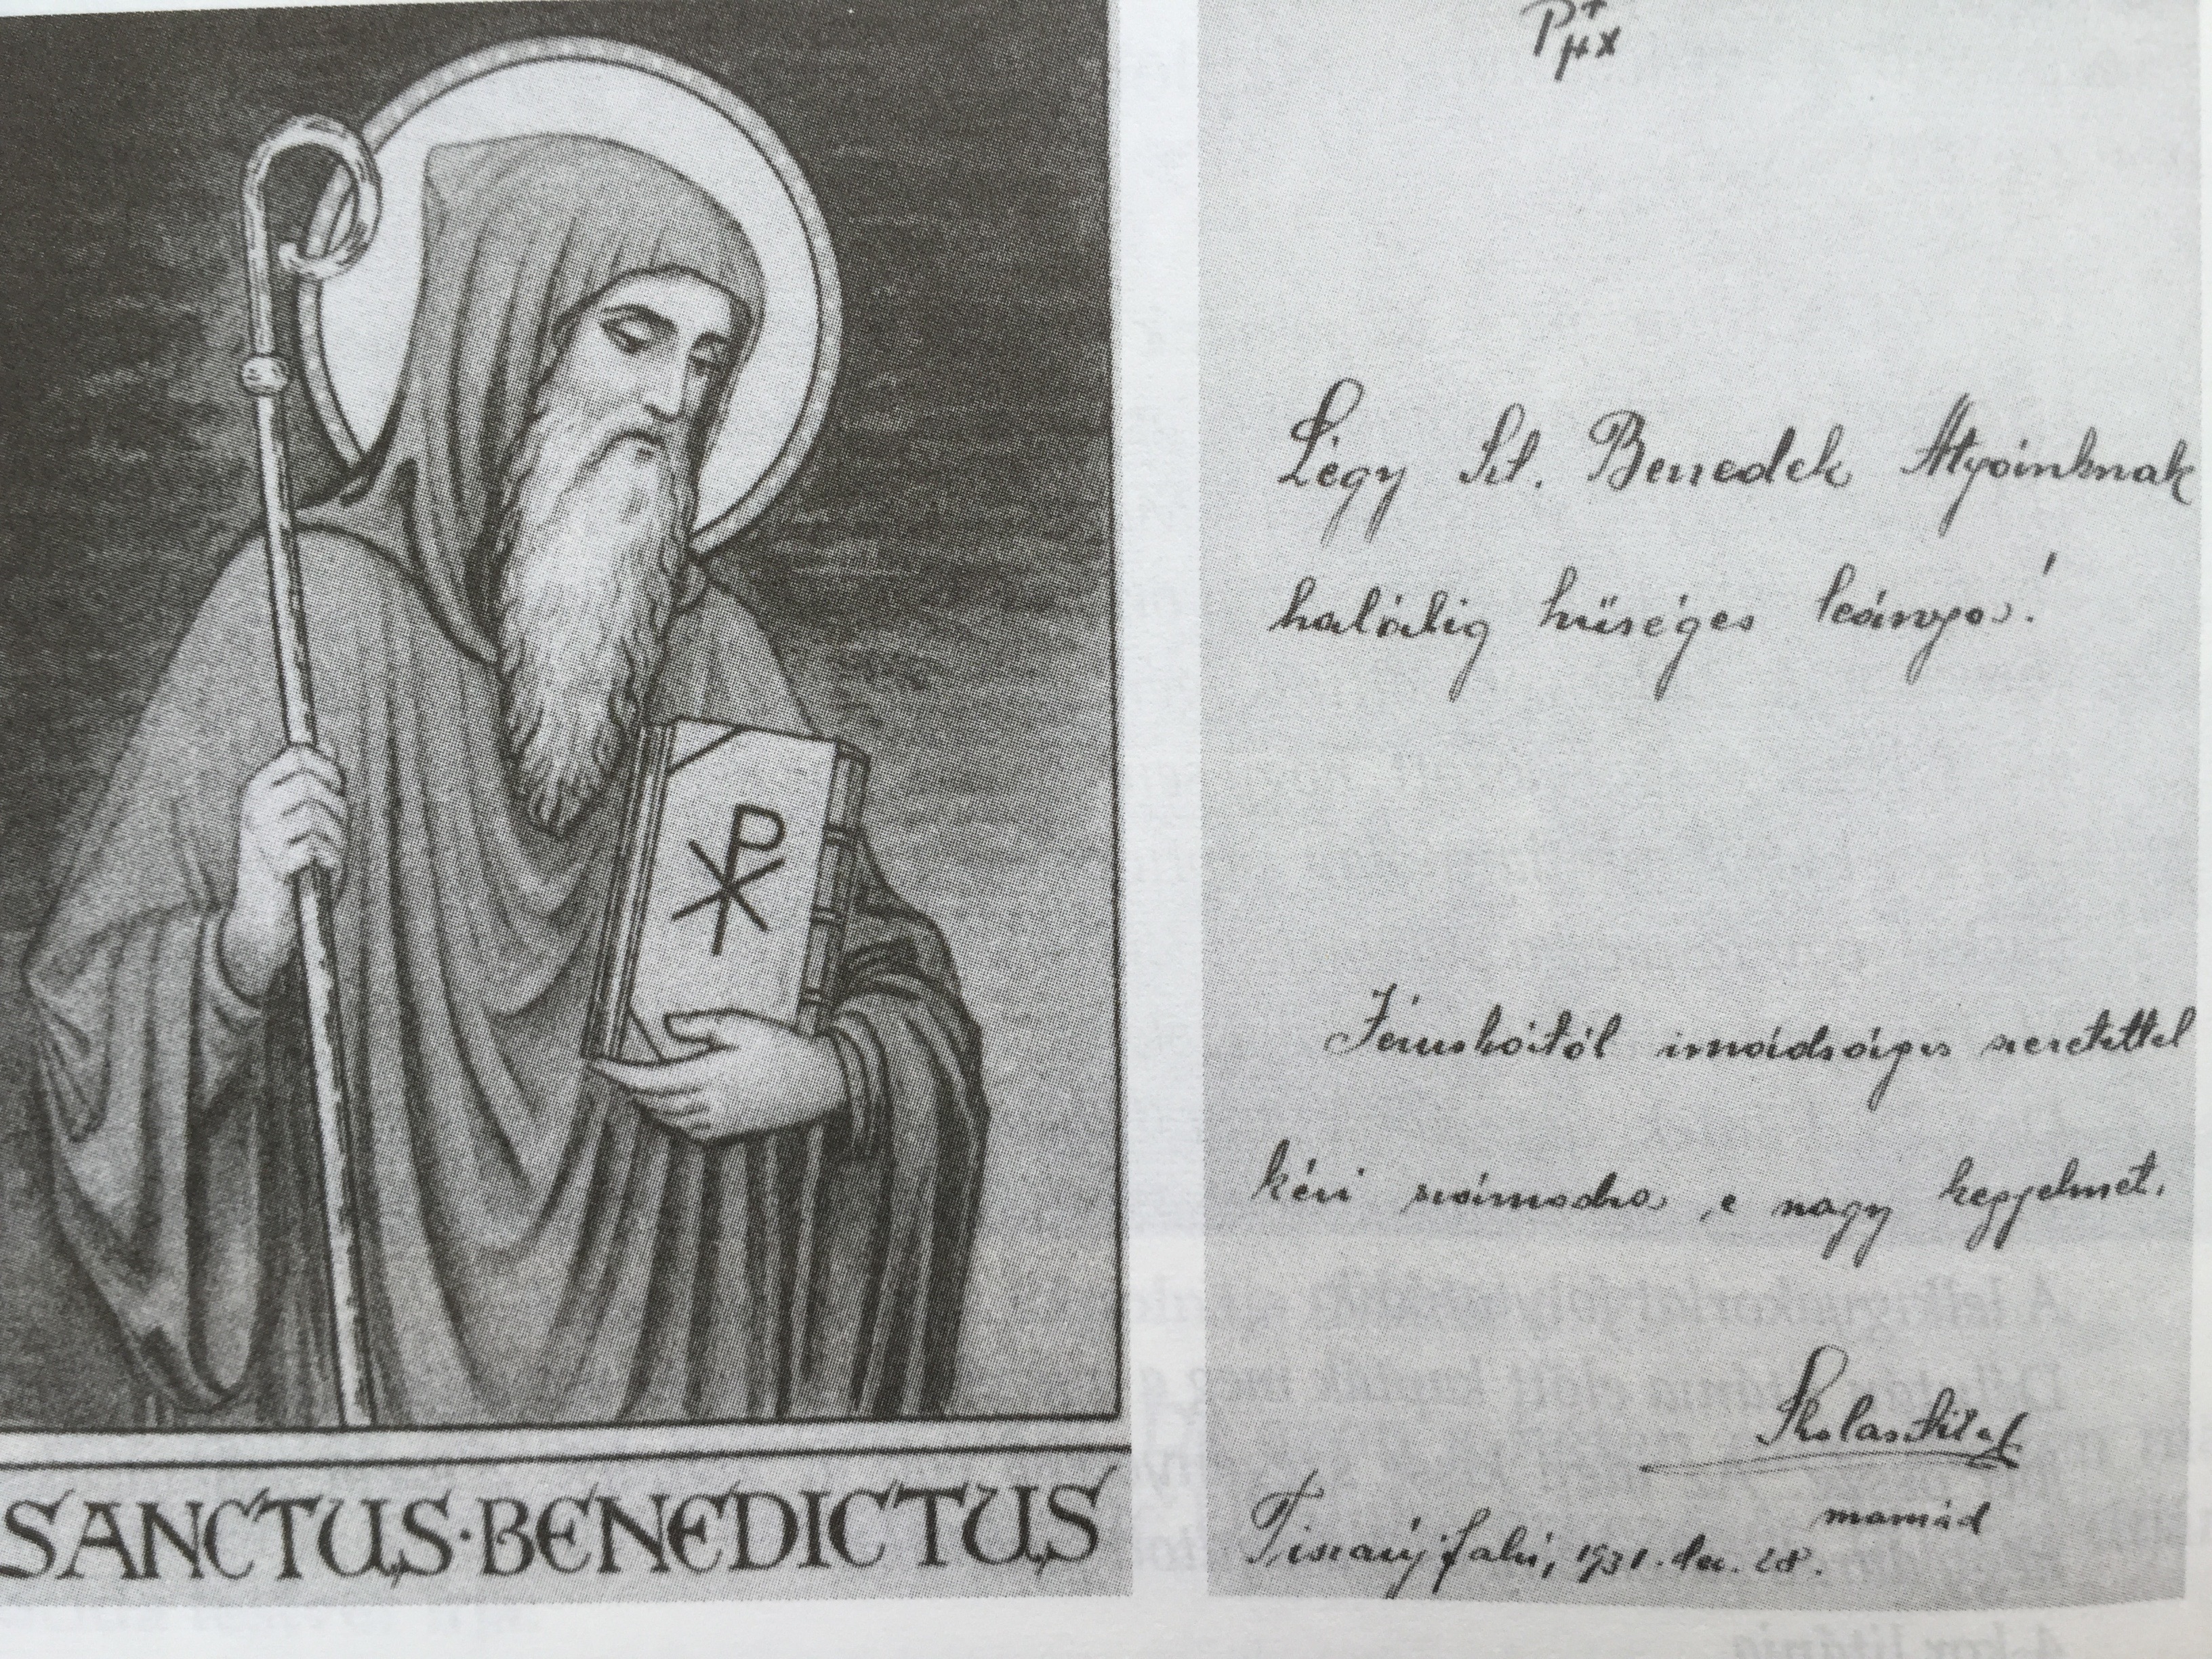 SANCTUS·BENEDICTUS
P+
Légy Szt. Benedek Atyánknak
haláláig hűséges leánya!
Jézuskától imádságos szeretettel
kéri számodra e nagy kegyelmet.
Skolastika
mamád
Tiszaújfalu, 1931. dec. 28.